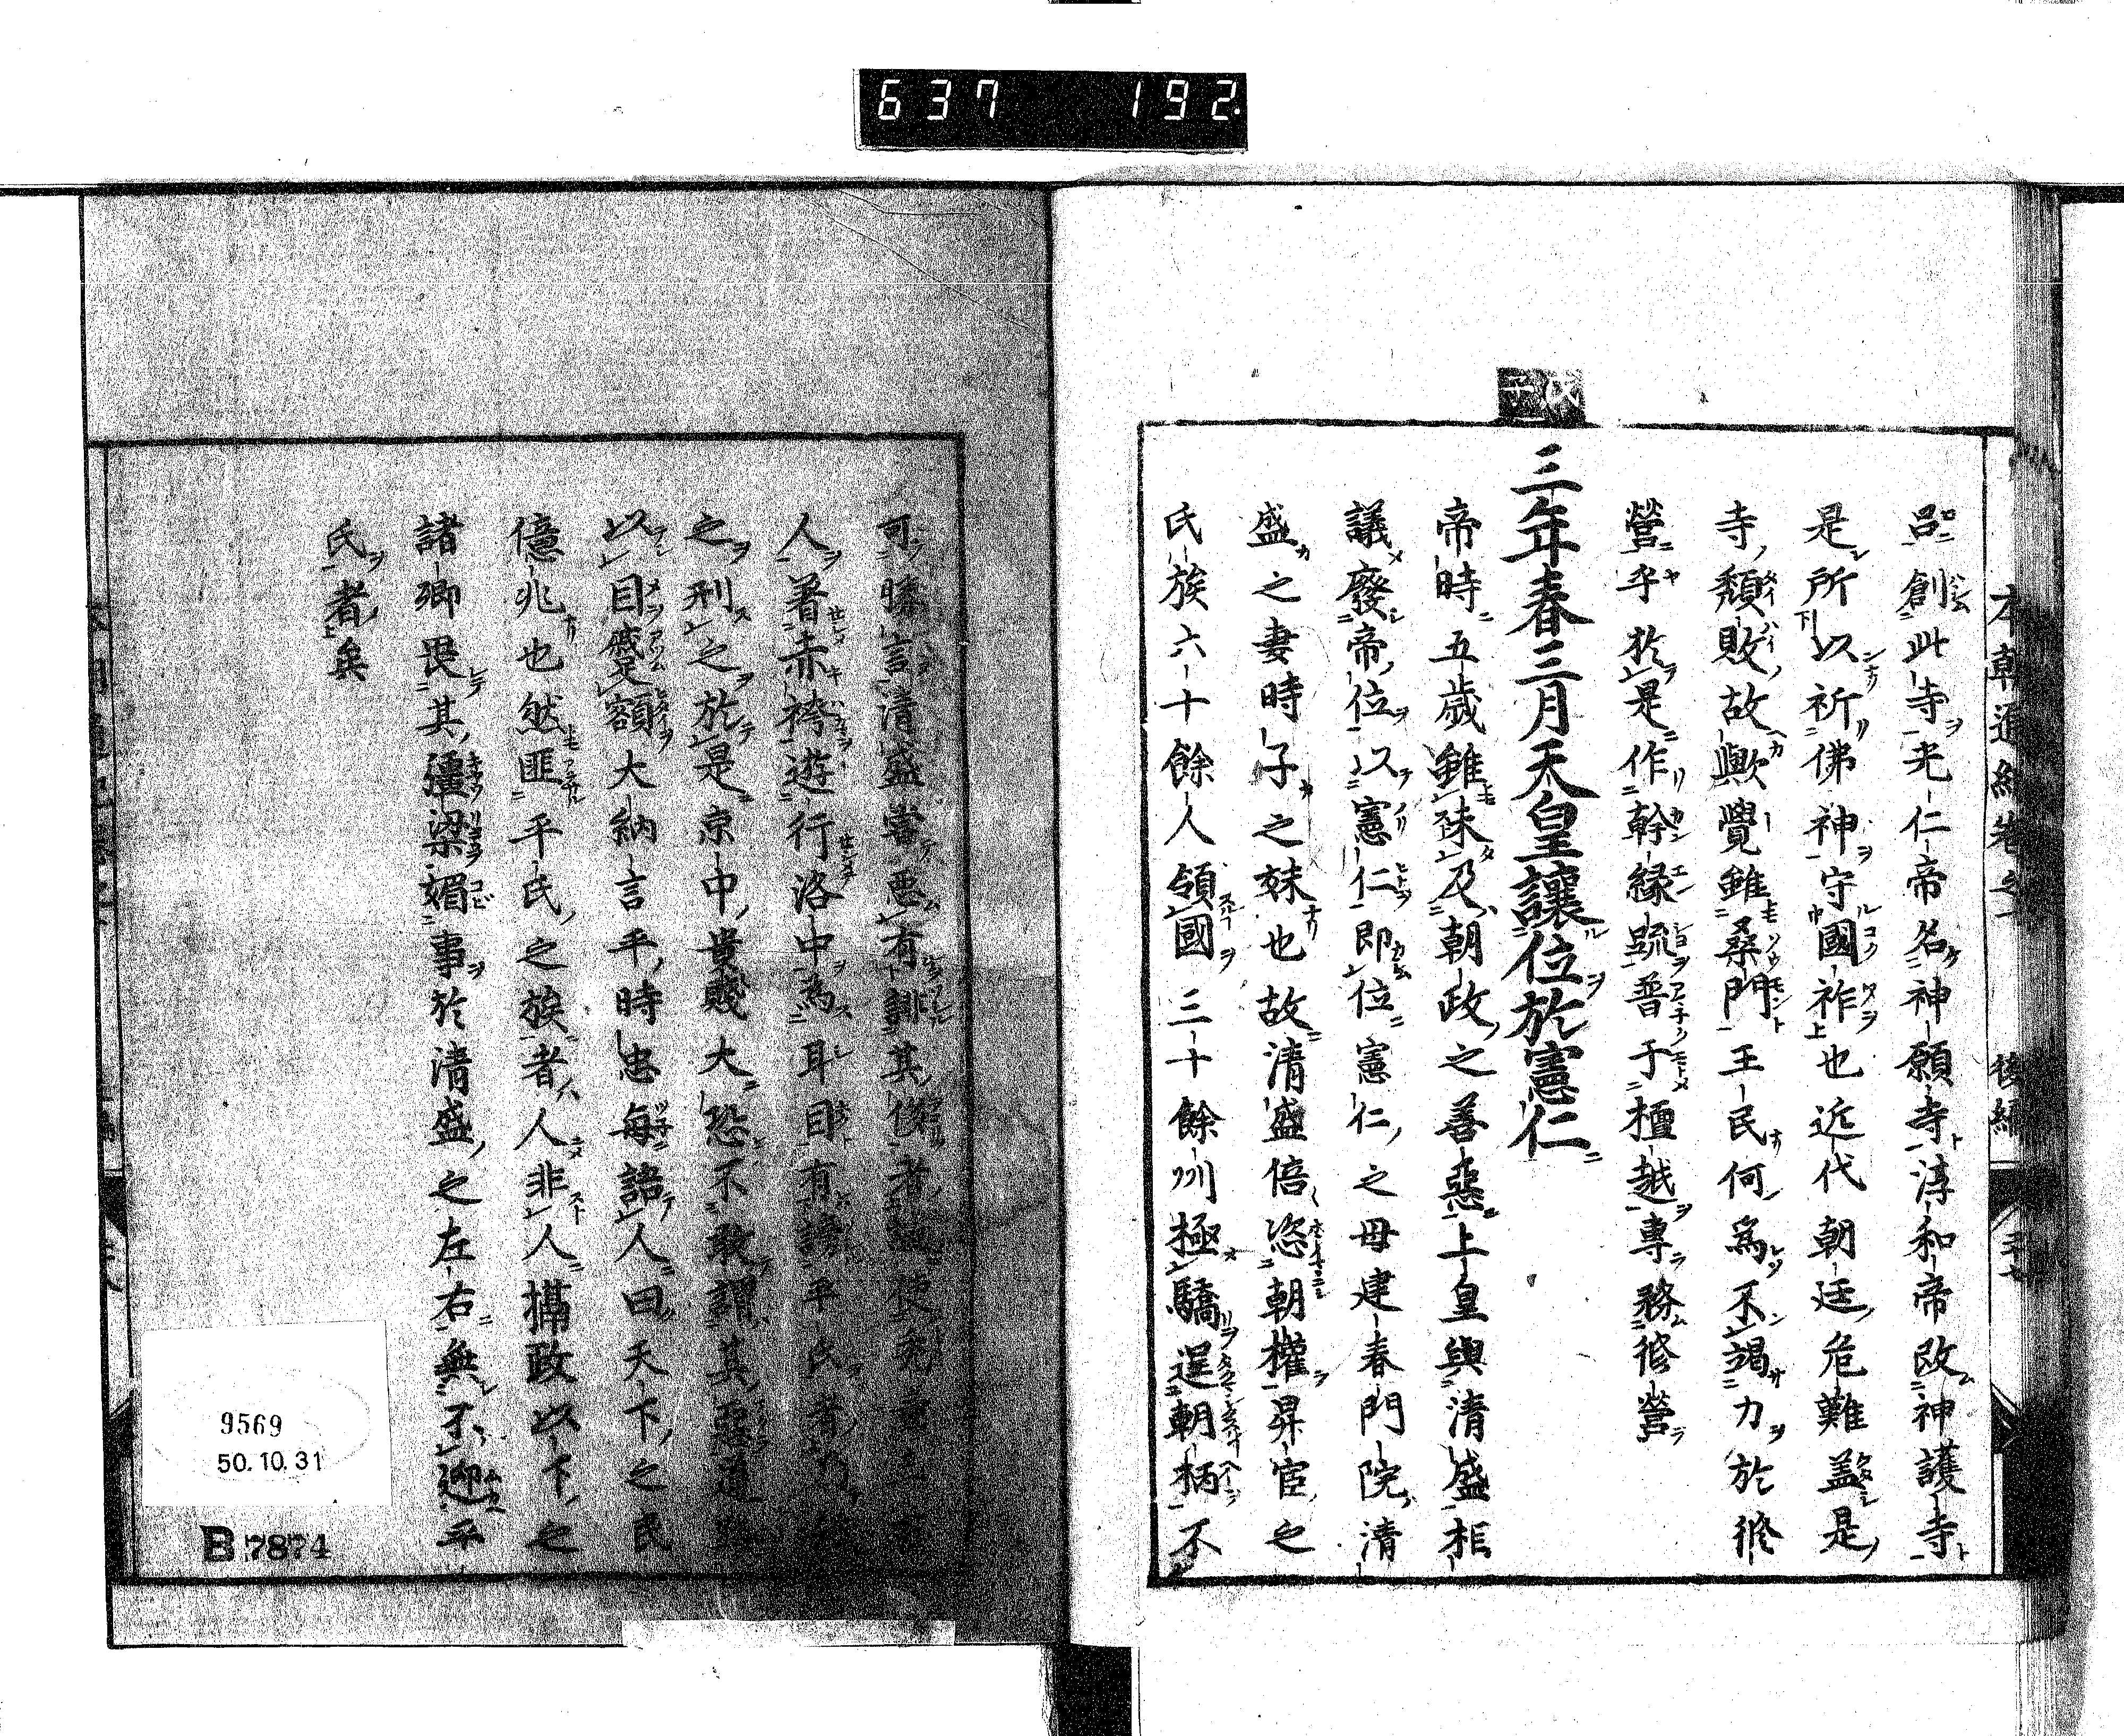 637 192
本朝通紀卷之 後編
呂創此寺光仁帝名神願寺淳和帝改神護寺
是所以祈佛神守國祚也近代朝廷危難蓋是
寺頽敗故歟覺雖桑門王民何爲不竭力於修
營乎於是作幹縁疏普于檀越專務修營
三年春三月天皇讓位於憲仁
帝時五歳雖未及朝政之善惡上皇與清盛相
議廢帝位以憲仁即位憲仁之母建春門院清
盛之妻時子之妹也故清盛倍恣朝權昇宦之
氏族六十餘人領國三十餘州極驕逞朝柄不
可勝言清盛嘗惡有誹其
人著赤袴遊行洛中爲耳目有謗平氏者
之刑之於是京中貴賤大恐不敢謂其惡道
以目蹙額大納言平時忠毎語人曰天下之民
億兆也然匪平氏之族者人非人攝政以下之
諸卿畏其彊梁媚事於清盛之左右無不迎平
氏者矣
9569
50.10.31
B 7874